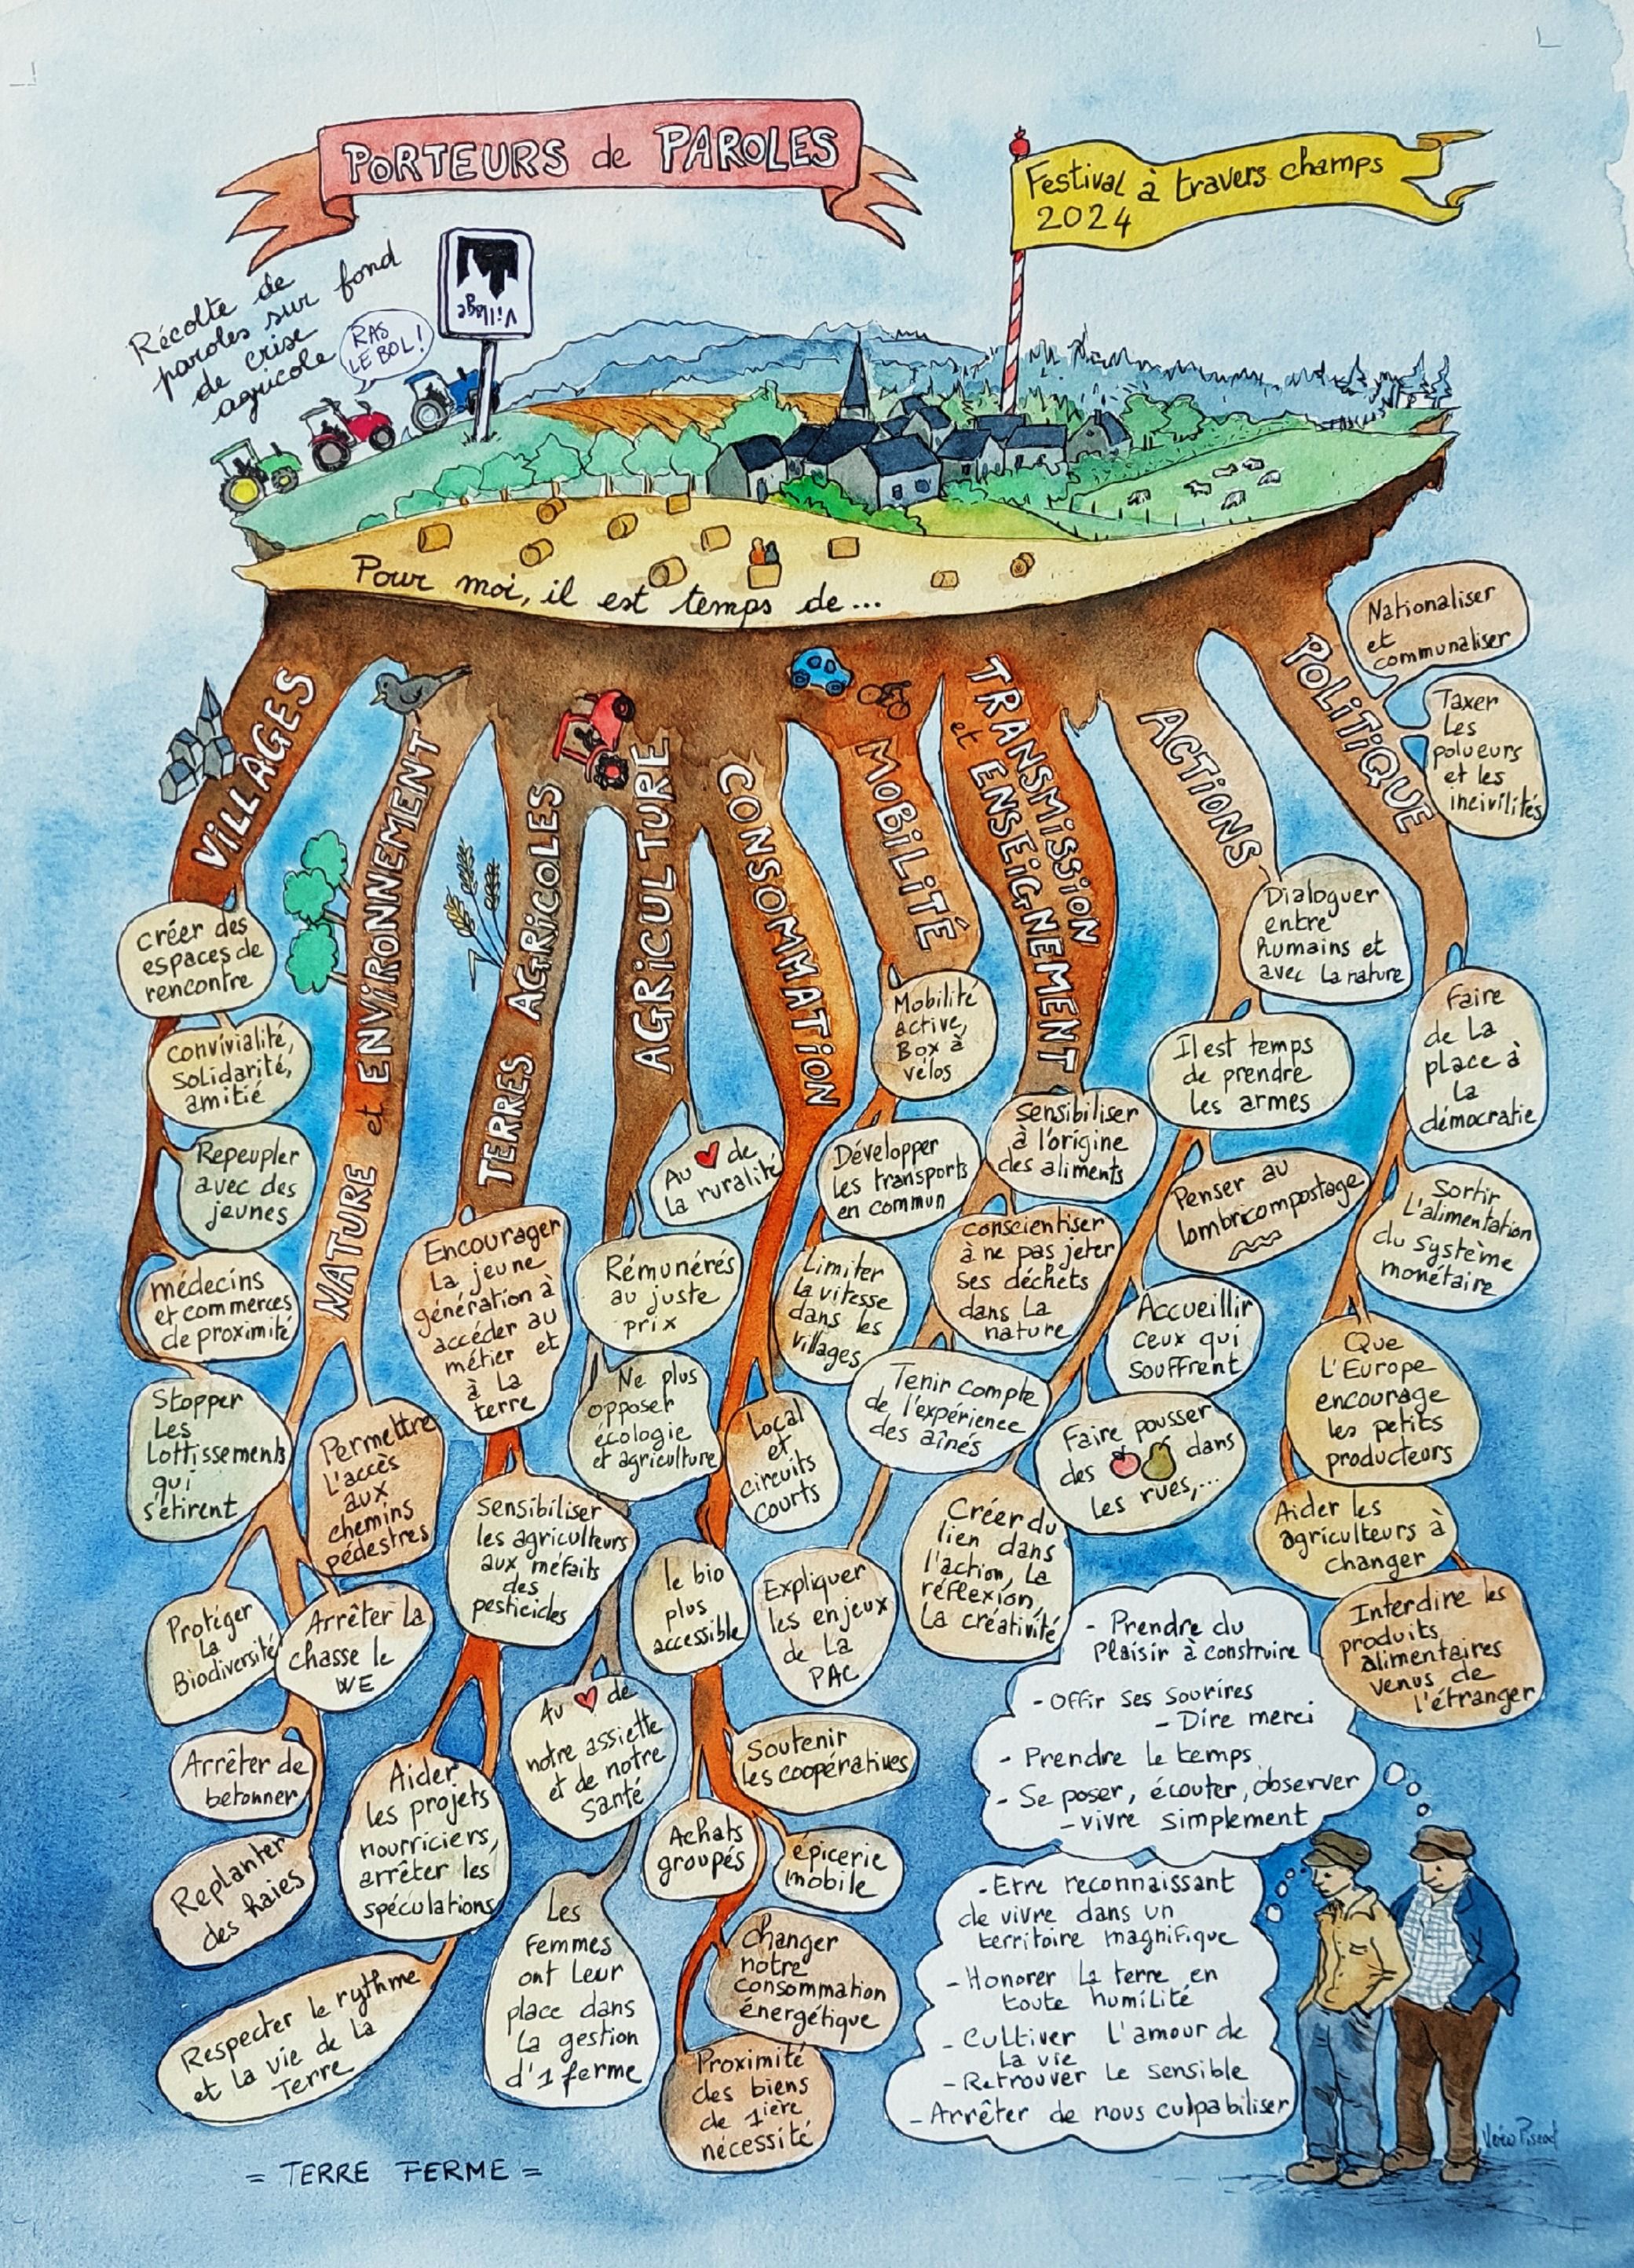 PORTEURS de PAROLES
Festival à travers champs
2024
Récolte de
paroles sur fond
de crise
agricole
RAS
LE BOL!
Village
Pour moi, il est temps de...
VILLAGES
créer des
espaces de
rencontre
convivialité,
solidarité,
amitié
Repeupler
avec des
jeunes
médecins
et commerces
de proximité
Stopper
Les
Lottissements
qui
s'étirent
NATURE et ENVIRONNEMENT
Permettre
l'accès
aux
chemins
pédestres
Protéger
La
Biodiversité
Arrêter la
chasse le
WE
Arrêter de
betonner
Replanter
des haies
TERRES AGRICOLES
Encourager
La jeune
génération à
accéder au
métier et
à La
terre
Sensibiliser
les agriculteurs
aux méfaits
des
pesticides
Aider
les projets
nourriciers,
arrêter les
spéculations
Respecter le rythme
et la vie de la
Terre
AGRICULTURE
Au ❤ de
La ruralité
Rémunérés
au juste
prix
Ne plus
opposer
écologie
et agriculture
Au ❤ de
notre assiette
et de notre
Santé
Les
Femmes
ont Leur
place dans
La gestion
d'1 ferme
CONSOMMATION
Local
et
circuits
courts
le bio
plus
accessible
Soutenir
les coopératives
Achats
groupés
épicerie
mobile
Changer
notre
consommation
énergétique
Proximité
des biens
de 1ière
nécessité
MOBILITÉ
Mobilité
active,
Box à
vélos
Développer
les transports
en commun
Limiter
la vitesse
dans les
villages
TRANSMISSION
et ENSEIGNEMENT
Sensibiliser
à l'origine
des aliments
conscientiser
à ne pas jeter
ses déchets
dans La
nature
Tenir compte
de l'expérience
des aînés
Expliquer
les enjeux
de La
PAC
ACTIONS
Dialoguer
entre
humains et
avec La nature
Il est temps
de prendre
les armes
Penser au
lombricompostage
Accueillir
ceux qui
souffrent
Faire pousser
des dans
les rues,...
Créer du
lien dans
l'action, La
réflexion,
La créativité
POLITIQUE
Nationaliser
et
communaliser
Taxer
Les
polueurs
et les
incivilités
Faire
de La
place à
La
démocratie
Sortir
L'alimentation
du Système
monétaire
Que
L'Europe
encourage
les petits
producteurs
Aider les
agriculteurs à
changer
Interdire les
produits
alimentaires
venus de
l'étranger
- Prendre du
Plaisir à construire
- Offir ses sourires
- Dire merci
- Prendre le temps
- Se poser, écouter, observer
- vivre simplement
- Etre reconnaissant
de vivre dans un
territoire magnifique
- Honorer La terre en
toute humilité
- Cultiver L'amour de
La vie
- Retrouver Le sensible
- Arrêter de nous culpabiliser
= TERRE FERME =